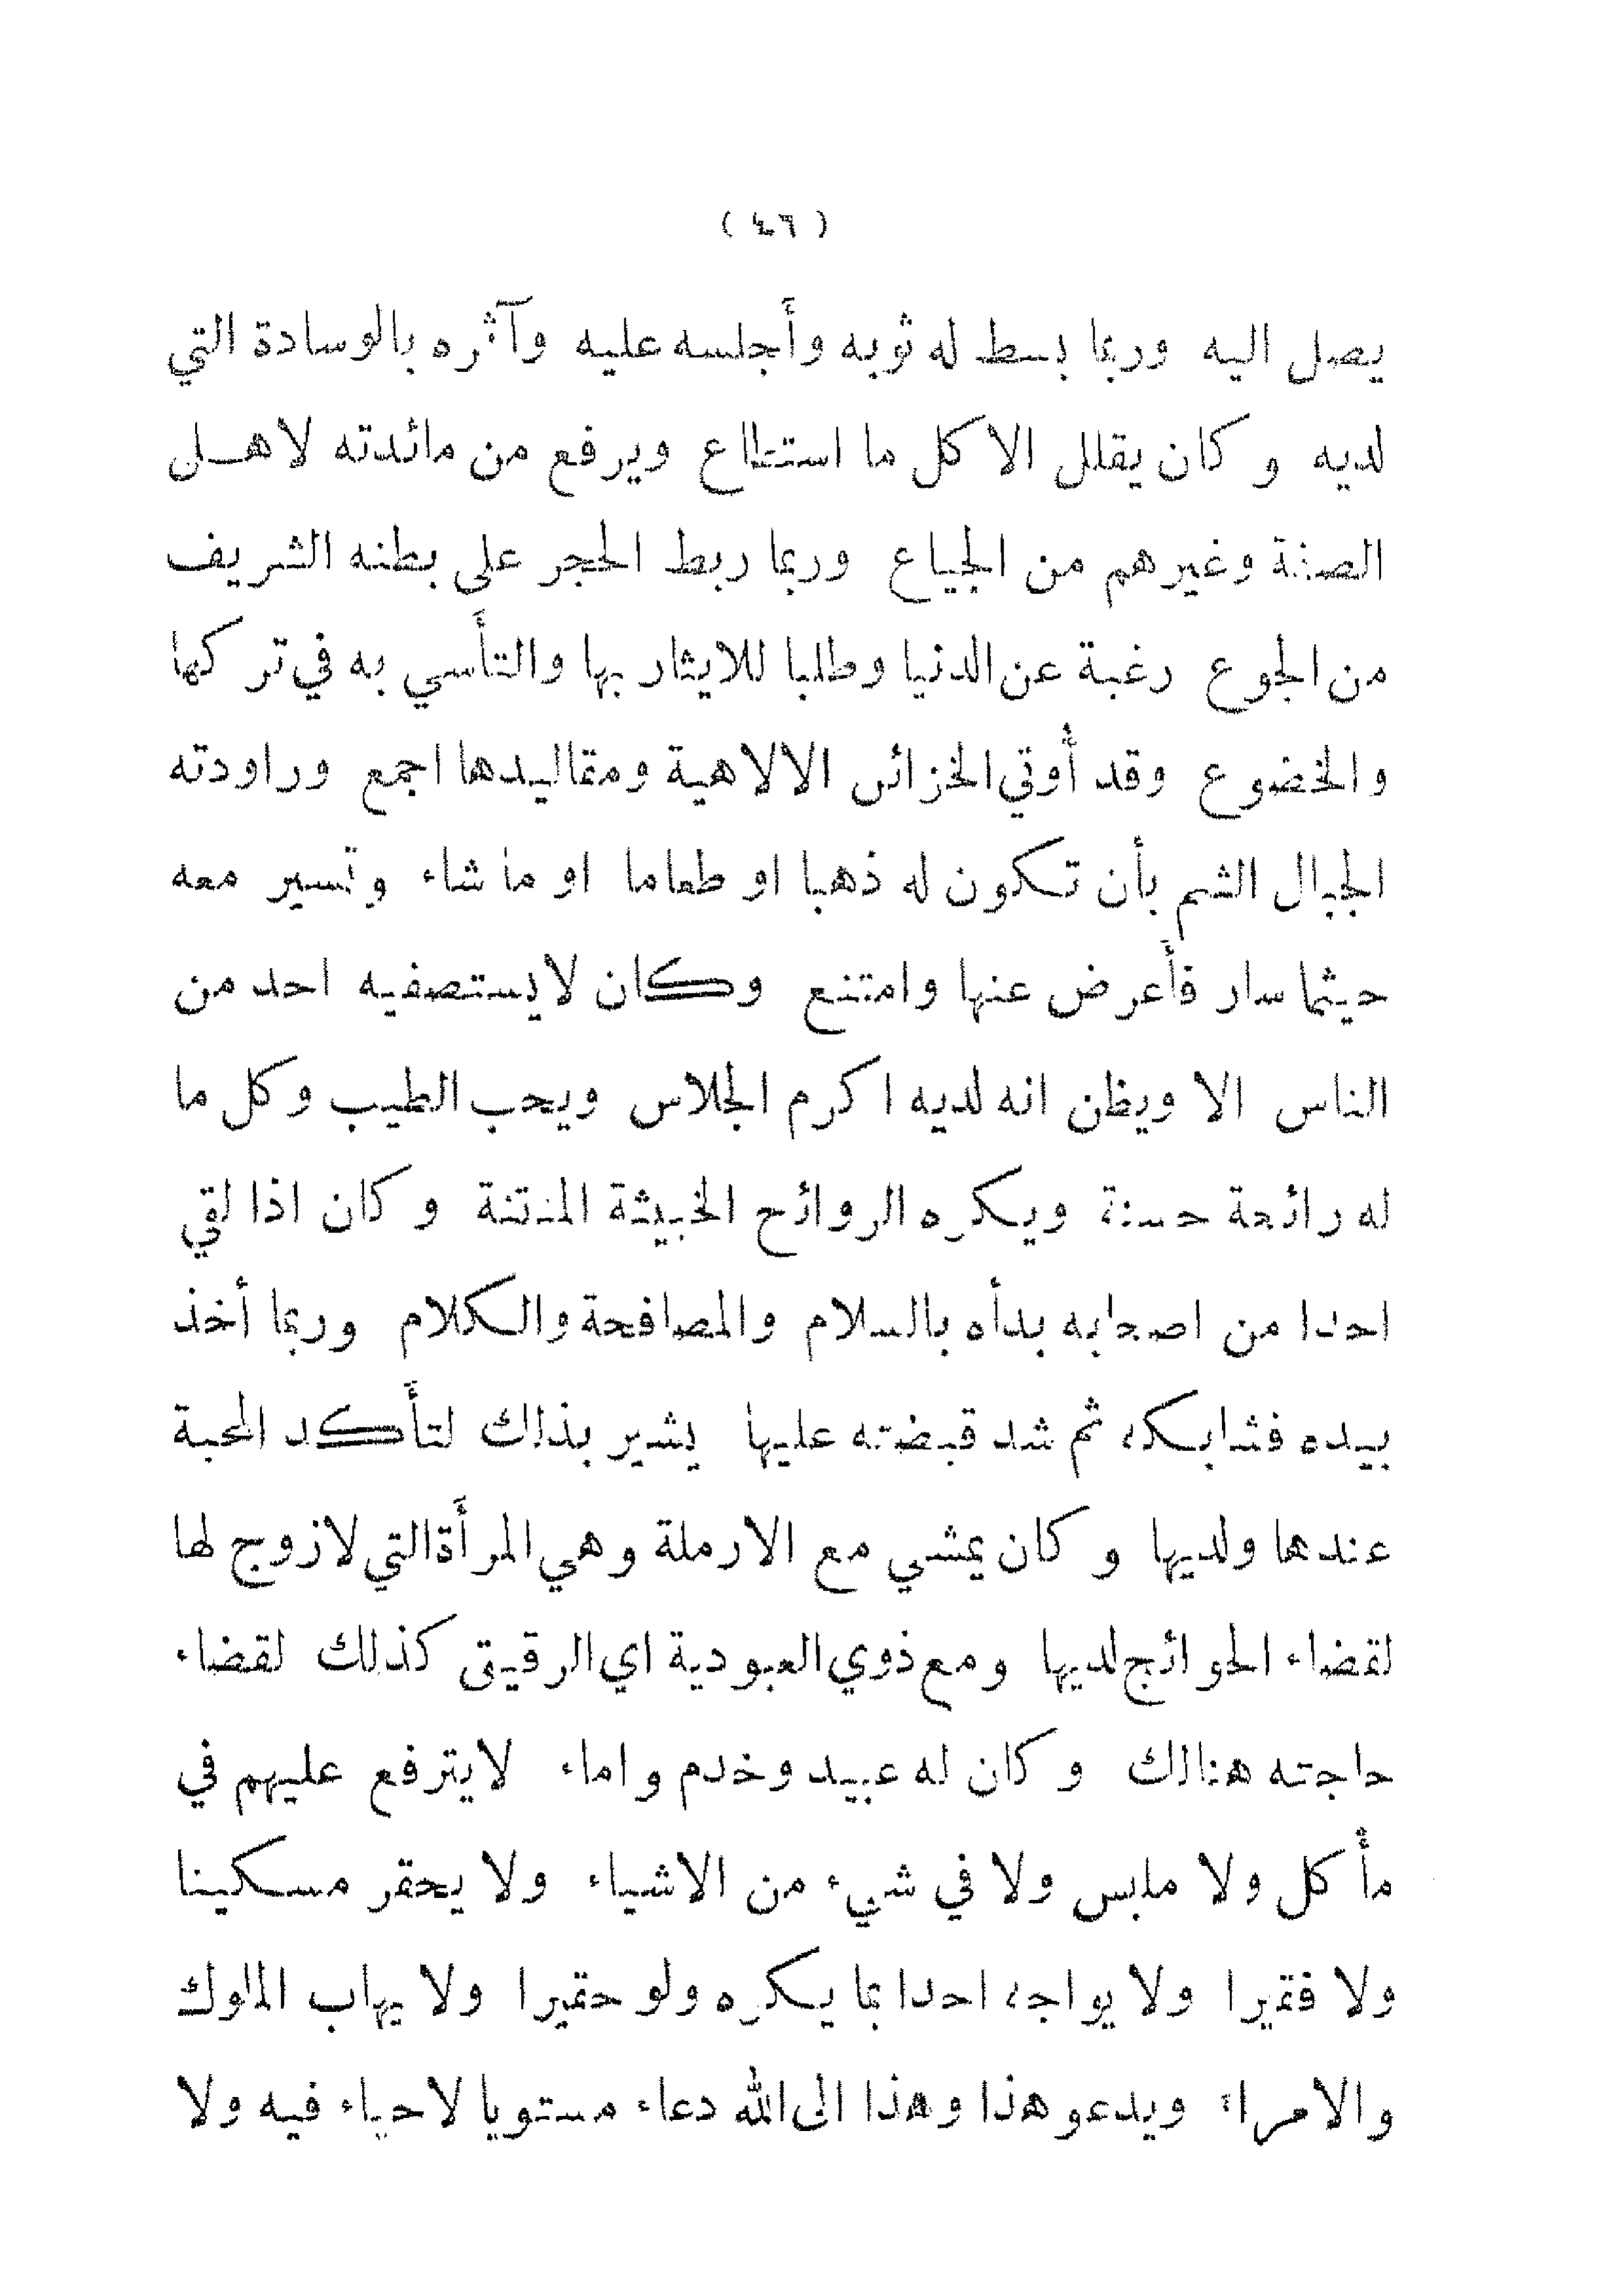 ( ٤٦ )
يصل اليه وربما بسط له ثوبه وأجلسه عليه وآثره بالوسادة التي
لديه وكان يقلل الاكل ما استطاع ويرفع من مائدته لاهل
الصفة وغيرهم من الجياع وربما ربط الحجر على بطنه الشريف
من الجوع رغبة عن الدنيا وطلبا للايثار بها والتأسي به في تركها
والخضوع وقد أوتي الخزائن الالاهية ومقاليدها اجمع وراودته
الجبال الشم بأن تكون له ذهبا او طعاما او ما شاء وتسير معه
حيثما سار فأعرض عنها وامتنع وكان لا يستصفيه احد من
الناس الا ويظن انه لديه اكرم الجلاس ويحب الطيب وكل ما
له رائحة حسنة ويكره الروائح الخبيثة المنتنة وكان اذا لقي
احدا من اصحابه بدأه بالسلام والمصافحة والكلام وربما أخذ
بيده فشابكه ثم شد قبضته عليها يشير بذلك لتأكد المحبة
عندها ولديها وكان يمشي مع الارملة وهي المرأة التي لا زوج لها
لقضاء الحوائج لديها ومع ذوي العبودية اي الرقيق كذلك لقضاء
حاجته هنالك وكان له عبيد وخدم واماء لا يترفع عليهم في
مأكل ولا ملبس ولا في شيء من الاشياء ولا يحقر مسكينا
ولا فقيرا ولا يواجه احدا بما يكره ولو حقيرا ولا يهاب الملوك
والامراء ويدعو هذا وهذا الى الله دعاء مستويا لا حياء فيه ولا